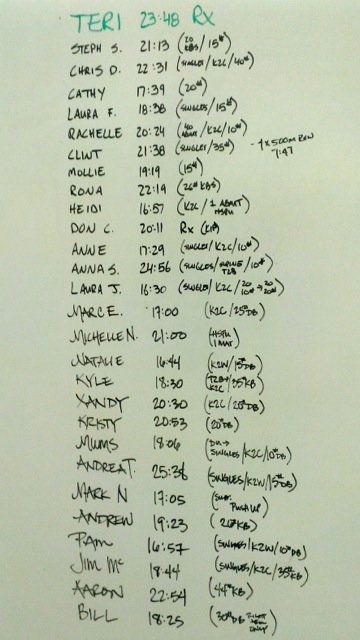 TERI 23:48 Rx
STEPH S. 21:13 (20 KBS/15#)
CHRIS D. 22:31 (SINGLES/K2C/40#)
CATHY 17:39 (20#)
LAURA F. 18:38 (SINGLES/15#)
RACHELLE 20:24 (40 ABMAT/K2C/10#)
CLINT 21:38 (SINGLES/35#) - 1x500M ROW 1:47
MOLLIE 19:19 (15#)
RONA 22:19 (26# KBS)
HEIDI 16:57 (K2C/1 ABMAT HSPU)
DON C. 20:11 Rx (KIP)
ANNE 17:29 (SINGLES/K2C/10#)
ANNA S. 24:56 (SINGLES/SUPINE T2B/10#)
LAURA J. 16:30 (SINGLES/K2C/20 10#→20 20#)
MARC E. 17:00 (K2C/25#DB)
MICHELLE N. 21:00 (HSPU 1 MAT)
NATALIE 16:44 (K2W/15#DB)
KYLE 18:30 (T2B→K2C/35#KB)
XANDY 20:30 (K2C/20#DB)
KRISTY 20:53 (20#DB)
MUMS 18:06 (DU→SINGLES/K2C/10#DB)
ANDREA T. 25:38 (SINGLES/K2W/15#DB)
MARK N 17:05 (SUB. PUSH UP)
ANDREW 19:23 (26#KB)
PAM 16:57 (SINGLES/K2W/10#DB)
JIM MC 18:44 (SINGLES/K2C/35#KB)
AARON 22:54 (44#KB)
BILL 18:25 (30#DB ONLY)